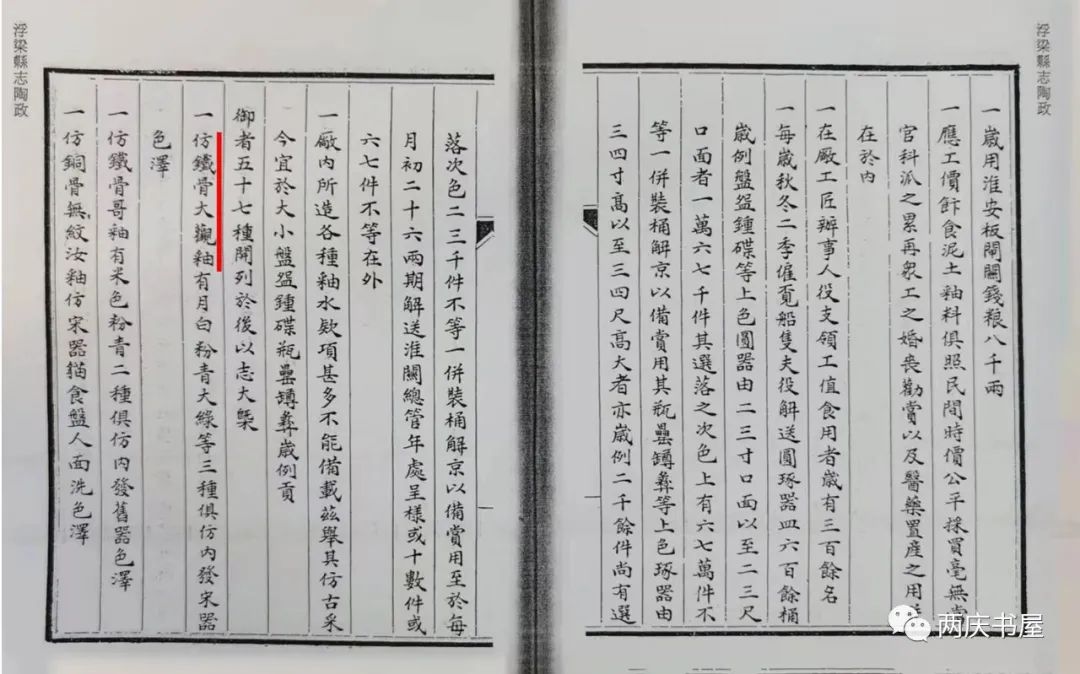 浮梁縣志陶政
一歲用淮安板閘關錢粮八千兩
一應工價飰食泥土釉料俱照民間時價公平採買毫無當
官科派之累再衆工之婚喪勸賞以及醫藥置產之用
在於內
一在厰工匠辦事人役支領工值食用者歲有三百餘名
一每歲秋冬二季僱覔船隻夫役解送圓琢器皿六百餘桶
歲例盤盌鍾碟等上色圓器由二三寸口面以至二三尺
口面者一萬六七千件其選落之次色上有六七萬件不
等一併裝桶解京以備賞用其瓶罍罇彝等上色琢器由
三四寸高以至三四尺高大者亦歲例二千餘件尚有選
落次色二三千件不等一併裝桶解京以備賞用至於每
月初二十六兩期解送淮關總管年處呈樣或十數件或
六七件不等在外
一厰內所造各種釉水欵項甚多不能備載茲舉其仿古采
今宜於大小盤盌鍾碟瓶罍罇彝歲例貢
御者五十七種開列於後以志大槩
一仿鐵骨大觀釉有月白粉青大綠等三種俱仿內發宋器
色澤
一仿鐵骨哥釉有米色粉青二種俱仿內發舊器色澤
一仿銅骨無紋汝釉仿宋器猫食盤人面洗色澤
浮梁縣志陶政
两庆书屋